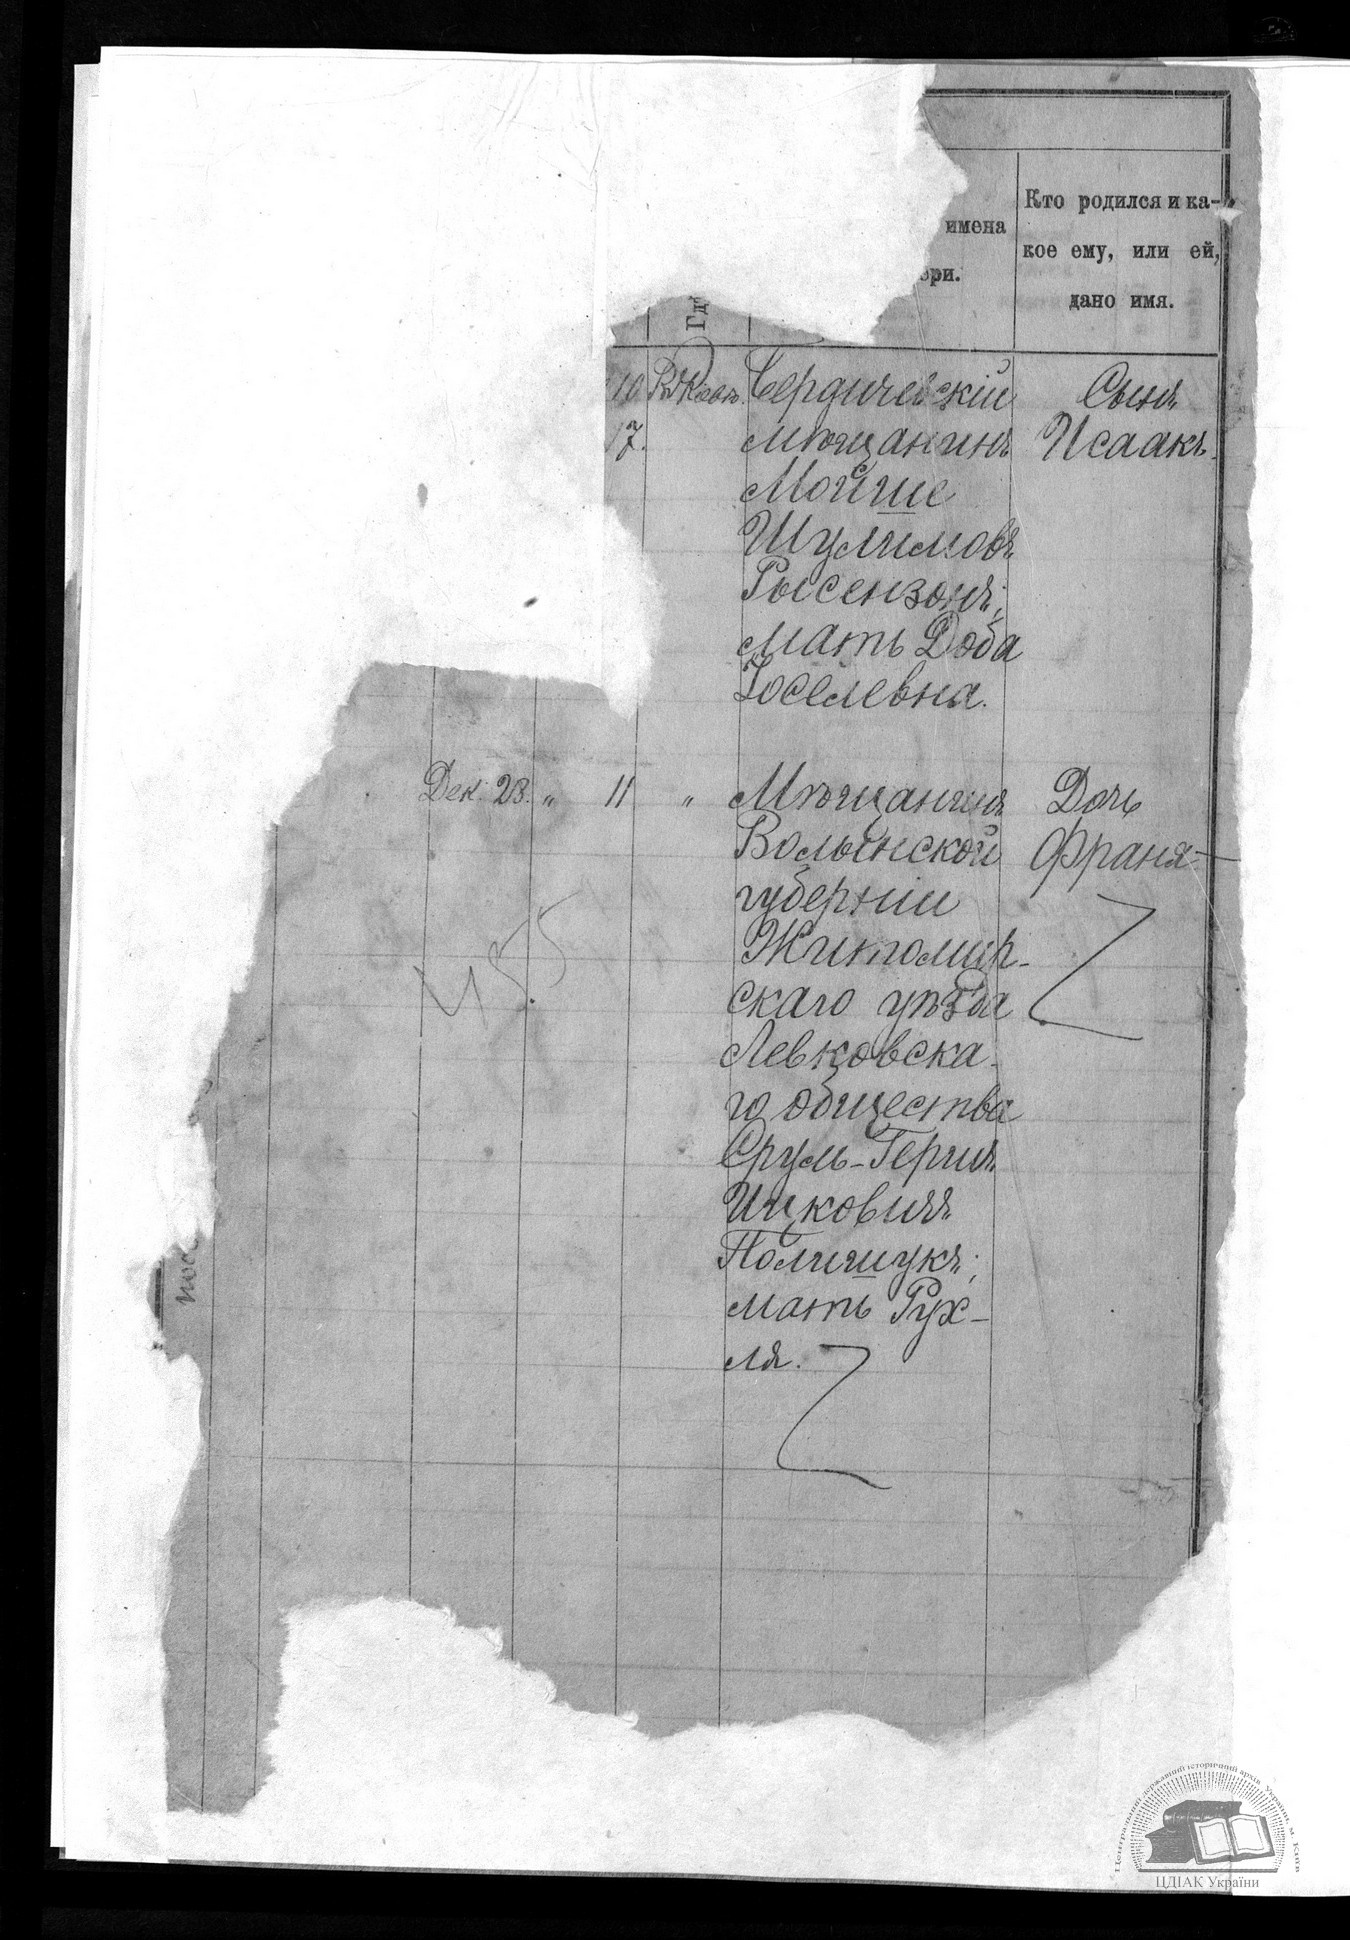 имена
ери.
Кто родился и ка-
кое ему, или ей,
дано имя.
10
17.
Бердичевскій
мѣщанинъ
Мойше
Шулимовъ
Рысензонъ;
мать Доба
Іоселевна.
Сынъ
Исаакъ.
Дек. 23. „ 11 „
Мѣщанинъ
Волынской
губерніи
Житомир-
скаго уѣзда
Левковска-
го общества
Сруль-Гершъ
Ицковичъ
Полищукъ;
мать Рух-
ля.
Дочь
Франя
455
Центральний державний історичний архів України, м. Київ
ЦДІАК України